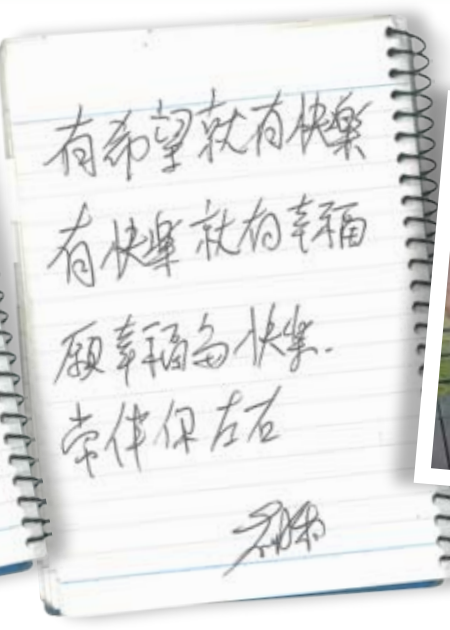 有希望就有快樂
有快樂就有幸福
願幸福与快樂.
常伴你左右